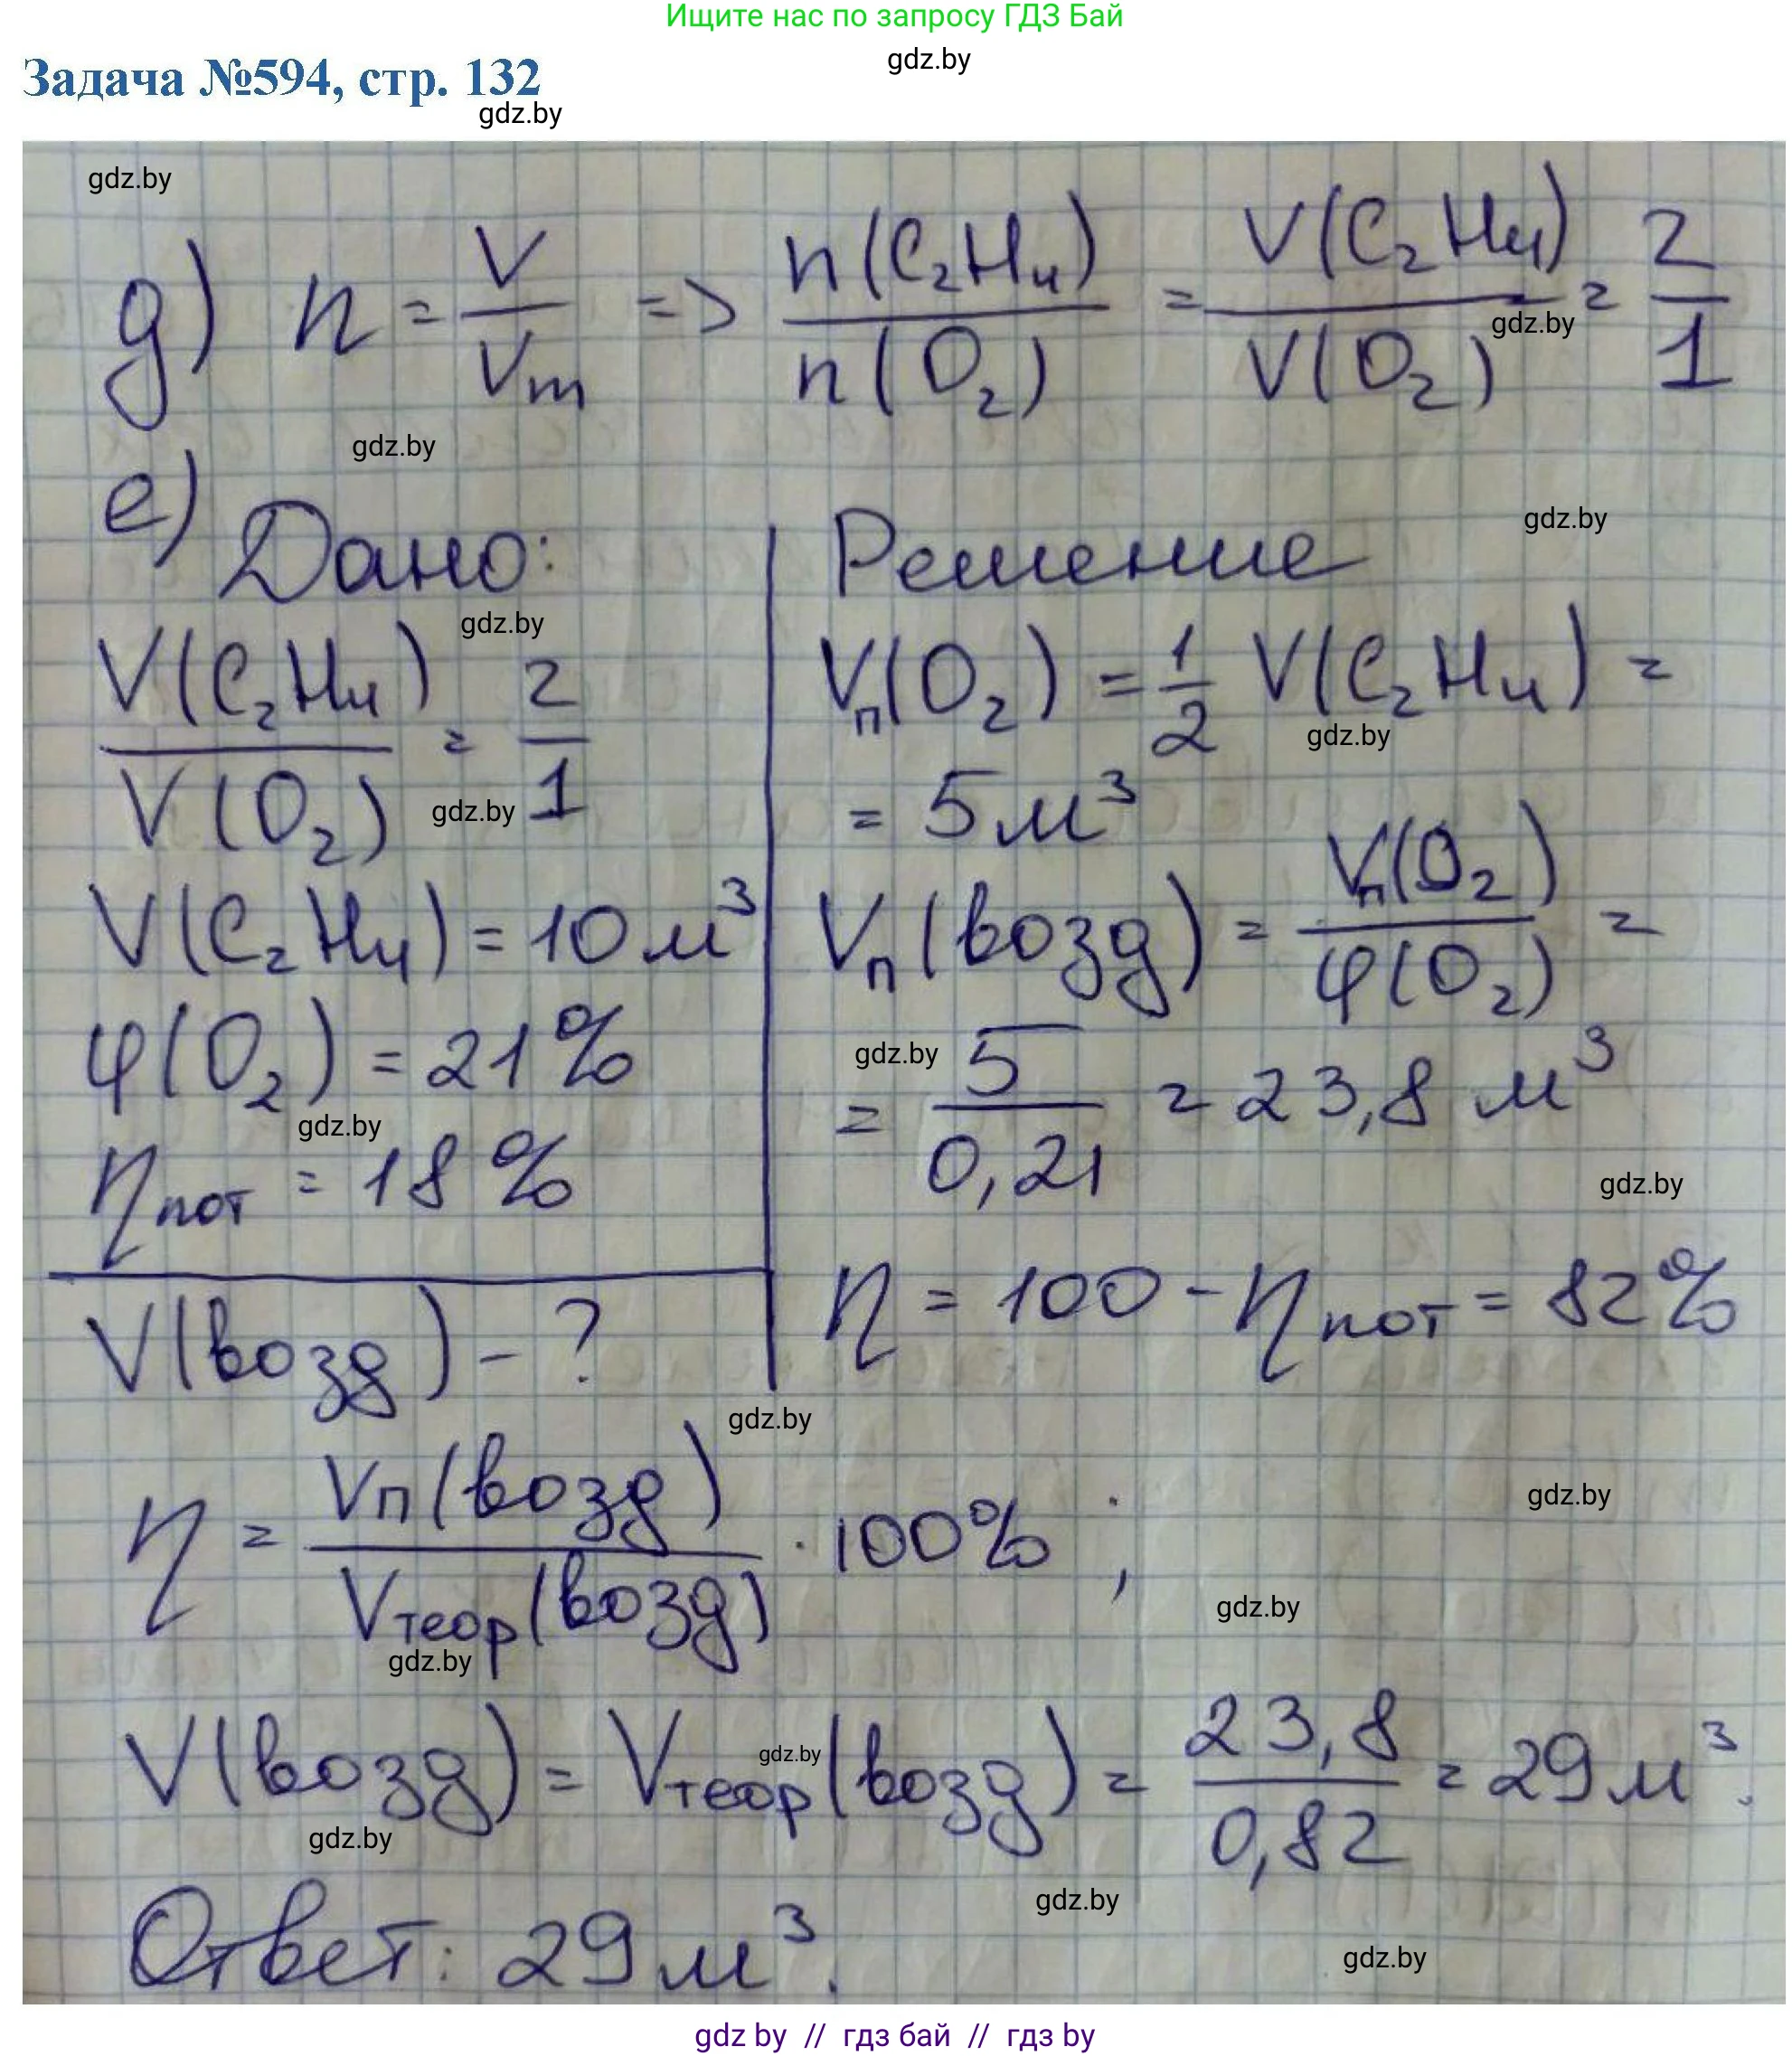 Ищите нас по запросу ГДЗ Бай
gdz.by
Задача №594, стр. 132
gdz.by
gdz.by
д) n = V/Vm => n(C₂H₄)/n(O₂) = V(C₂H₄)/V(O₂) = 2/1
gdz.by
gdz.by
е) Дано:
V(C₂H₄)/V(O₂) = 2/1
V(C₂H₄) = 10 м³
φ(O₂) = 21 %
ηпот = 18 %
V(возд) - ?
gdz.by
gdz.by
gdz.by
Решение
Vп(O₂) = 1/2 V(C₂H₄) =
= 5 м³
Vп(возд) = Vп(O₂)/φ(O₂) =
= 5/0,21 = 23,8 м³
η = 100 - ηпот = 82%
gdz.by
gdz.by
gdz.by
gdz.by
gdz.by
η = Vп(возд)/Vтеор(возд) · 100% ;
gdz.by
gdz.by
gdz.by
V(возд) = Vтеор(возд) = 23,8/0,82 = 29 м³.
gdz.by
gdz.by
gdz.by
Ответ: 29 м³.
gdz.by
gdz by // гдз бай // гдз by